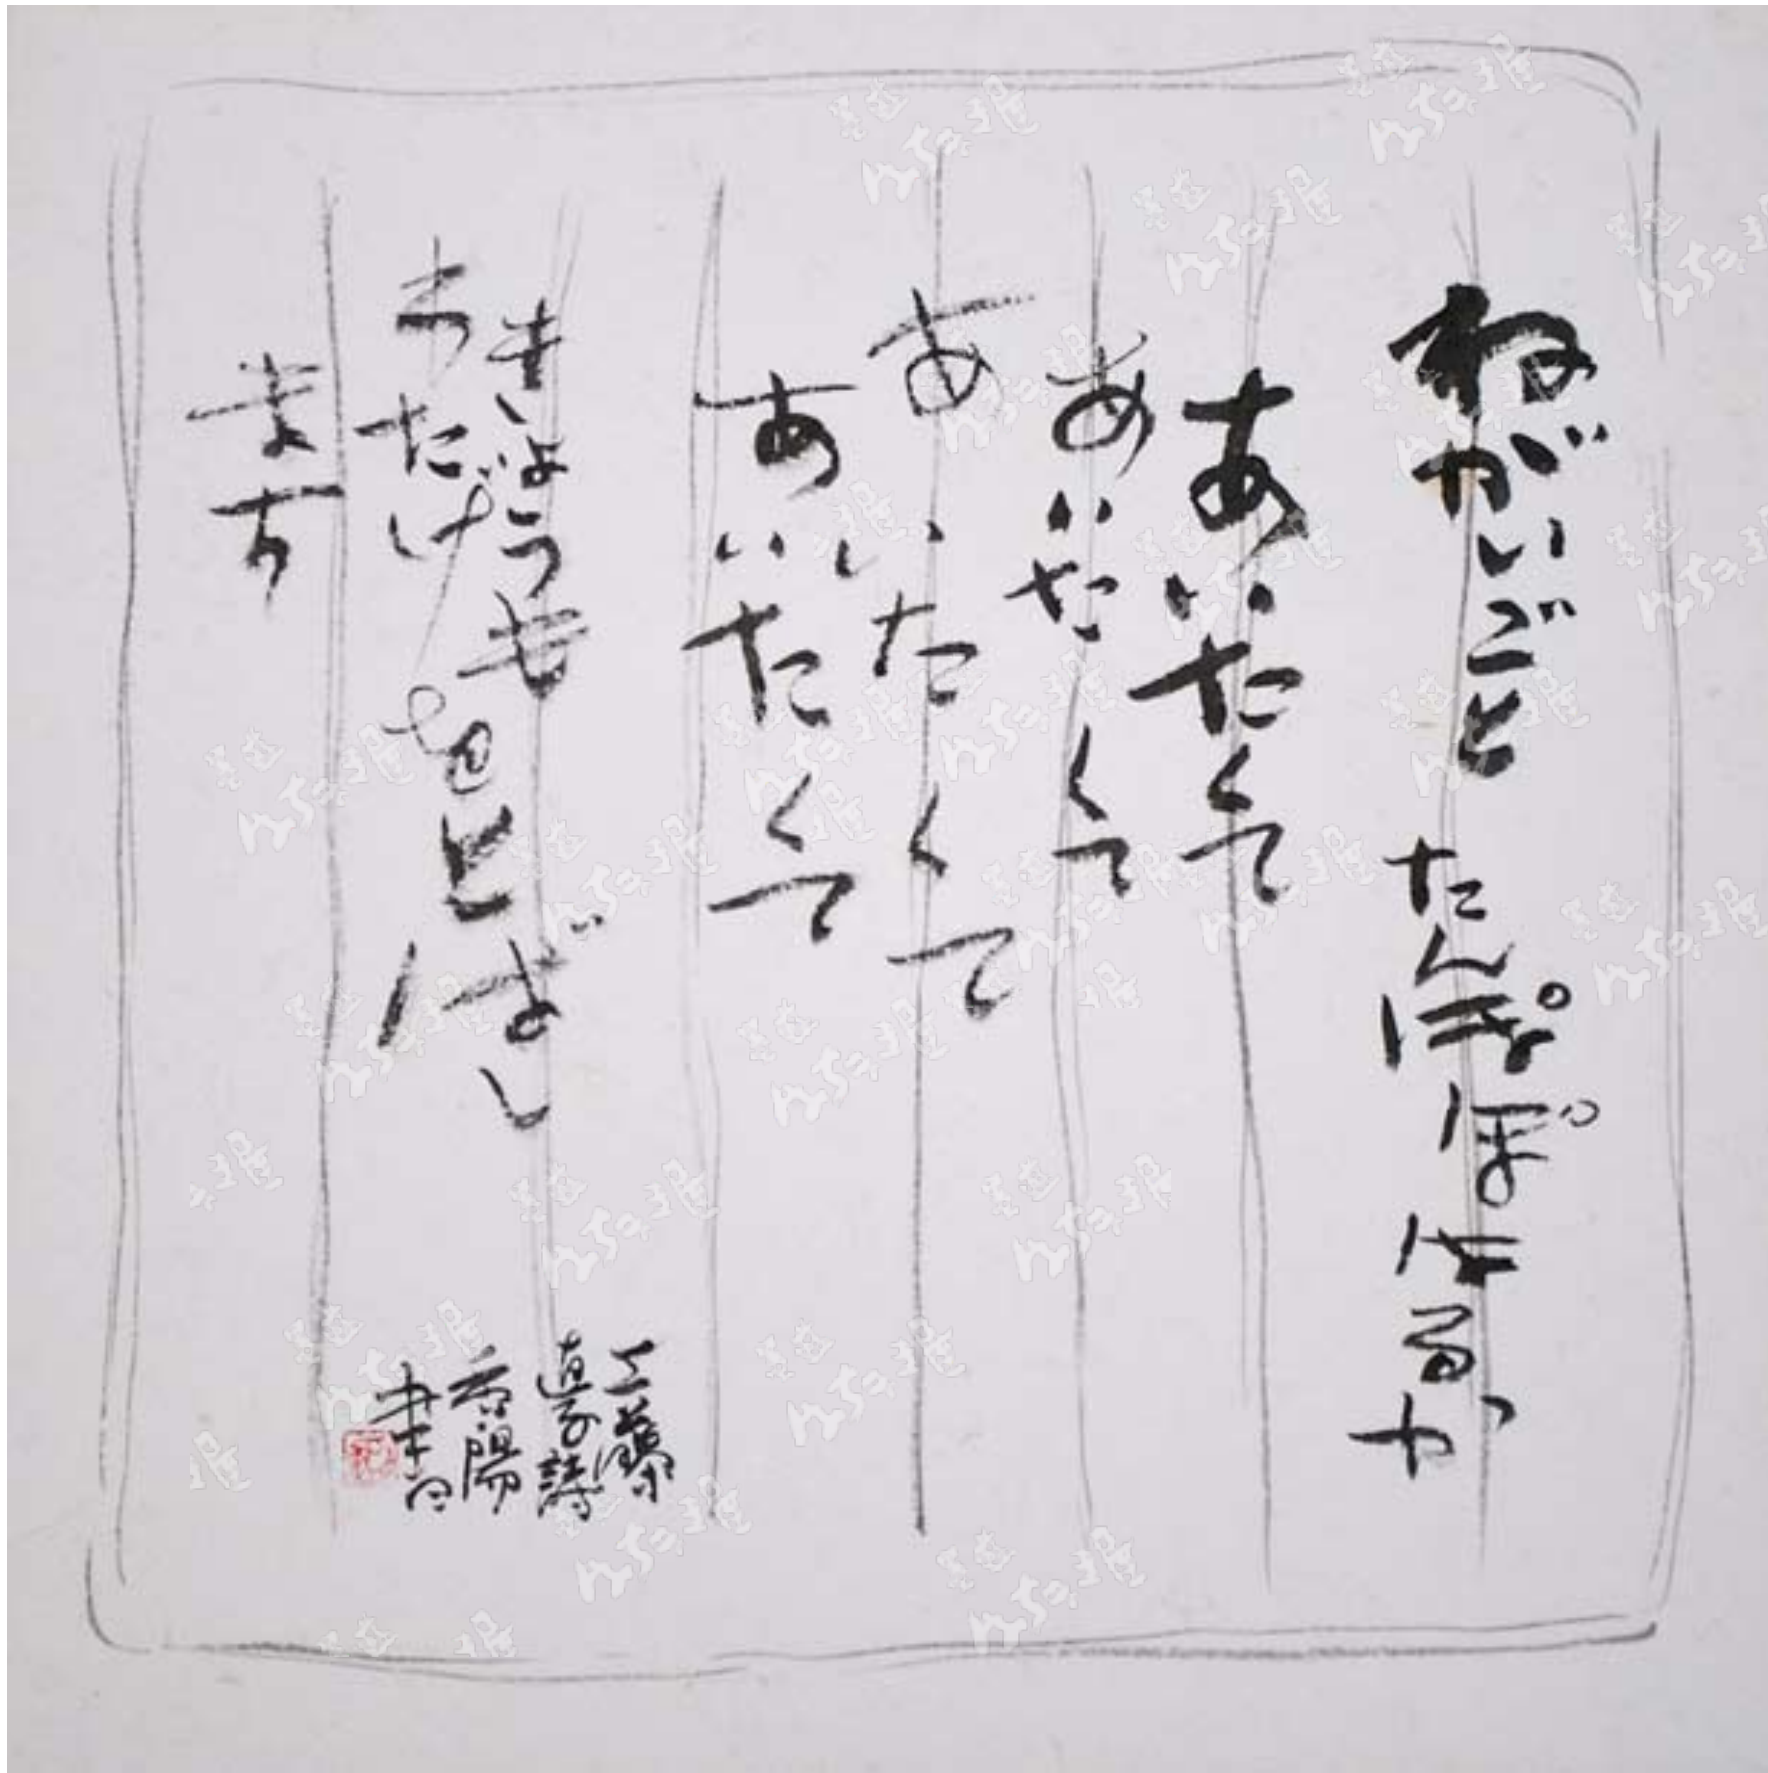 ねがいごと たんぽぽはるか
あいたくて
あいたくて
あいたくて
あいたくて
きょうも
わたげをとばし
ます
工藤
直子詩
陽
書